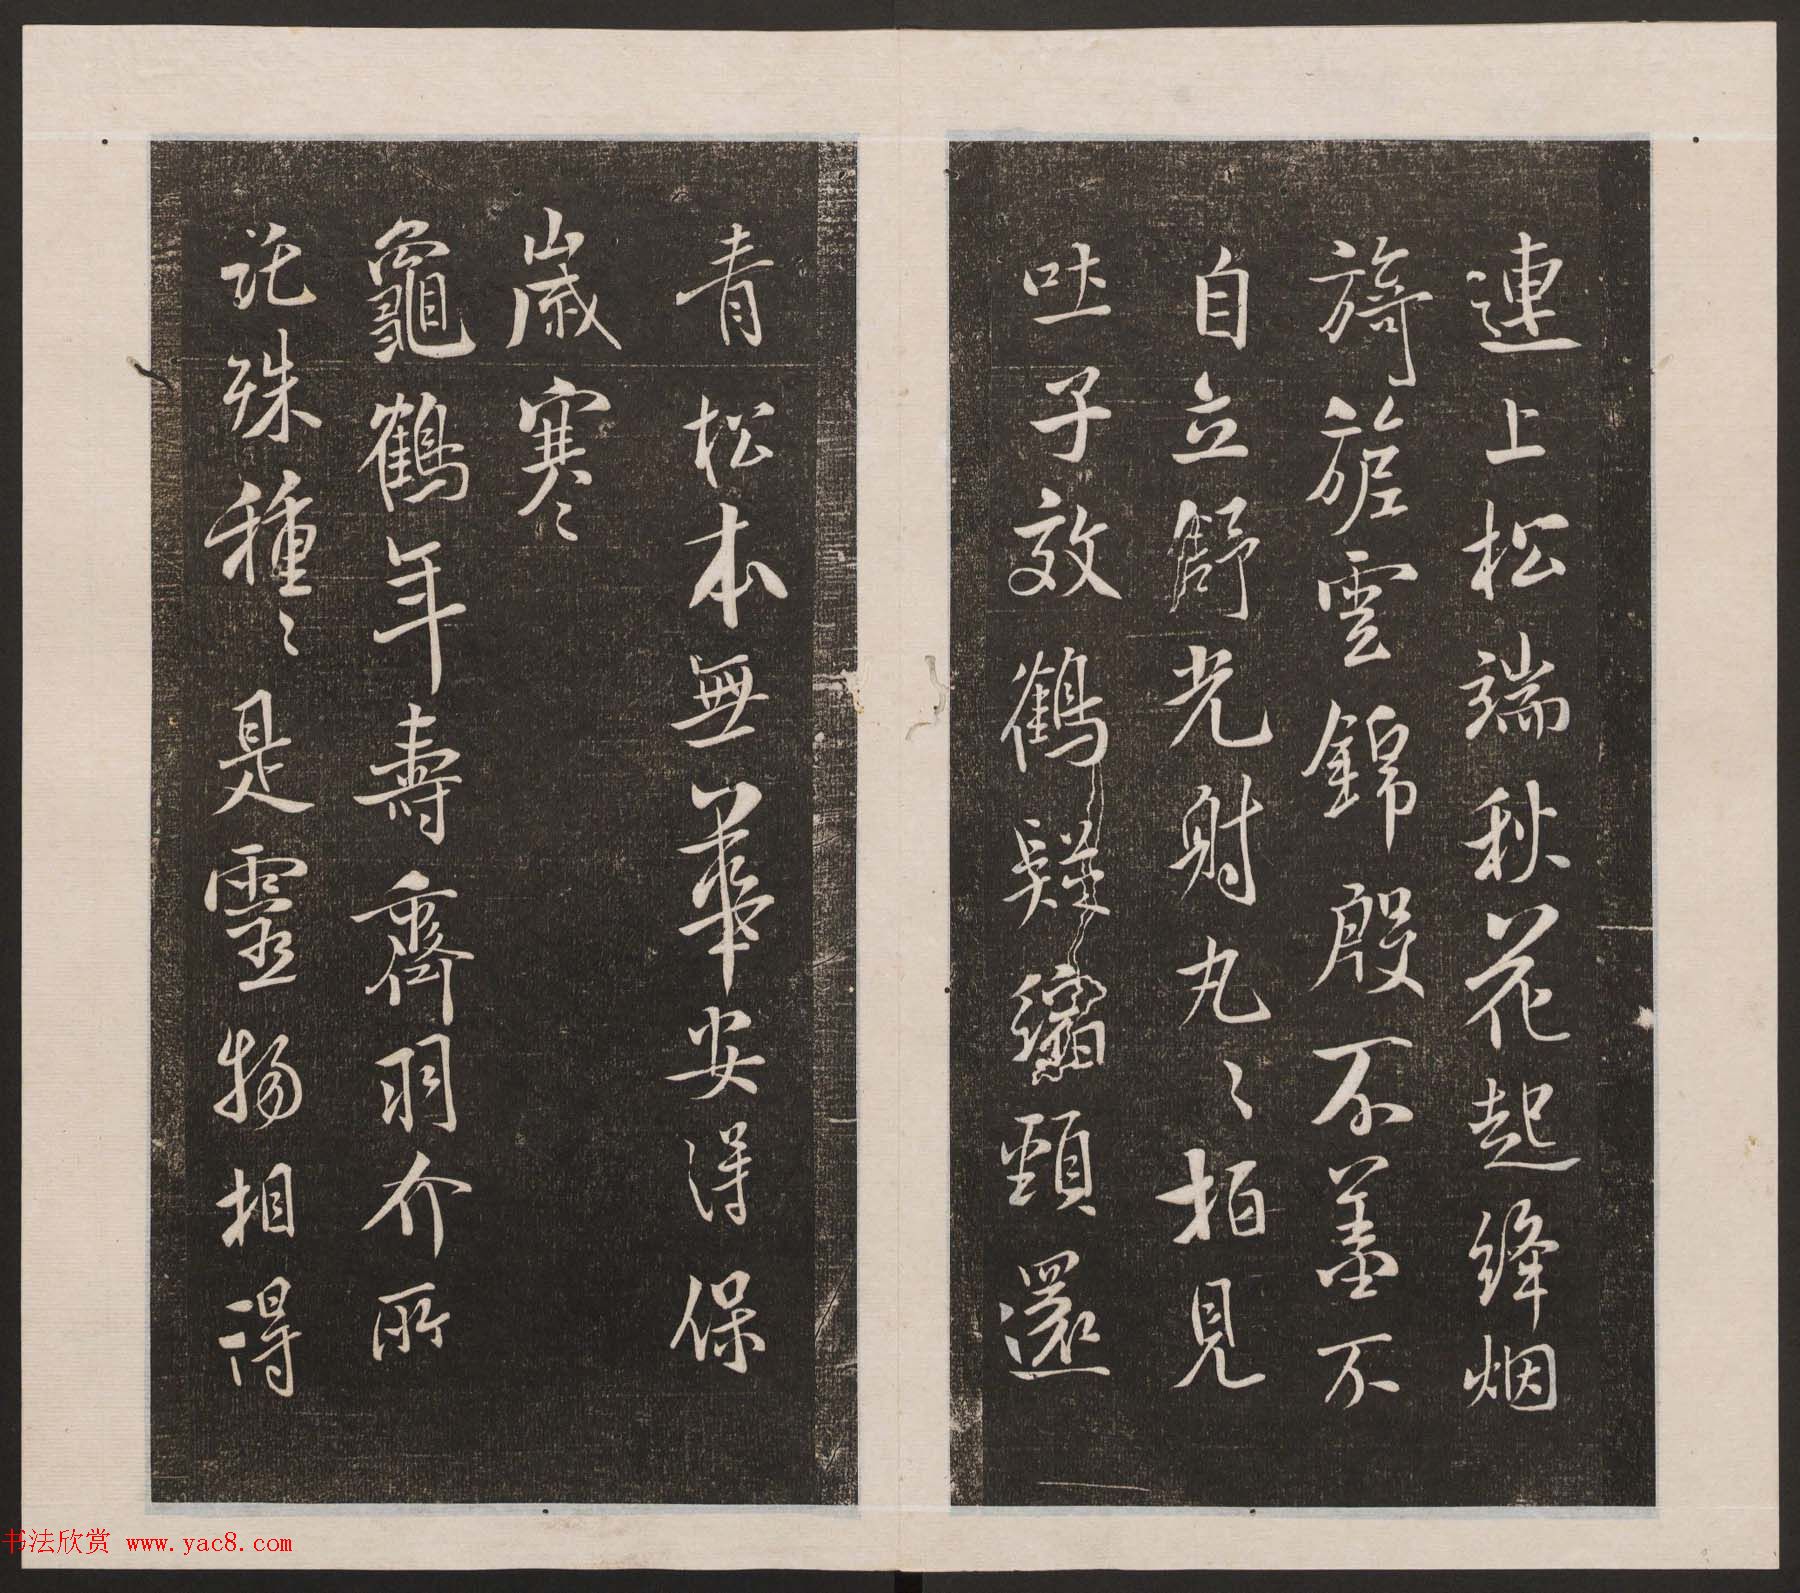 連上松端秋花起絳烟
旖旎雲錦殷不羞不
自立舒光射丸〻柏見
吐子效鶴疑縮頸還
青松本無華安得保
歲寒
龜鶴年壽齊羽介所
託殊種〻是靈物相得
书法欣赏 www.yac8.com